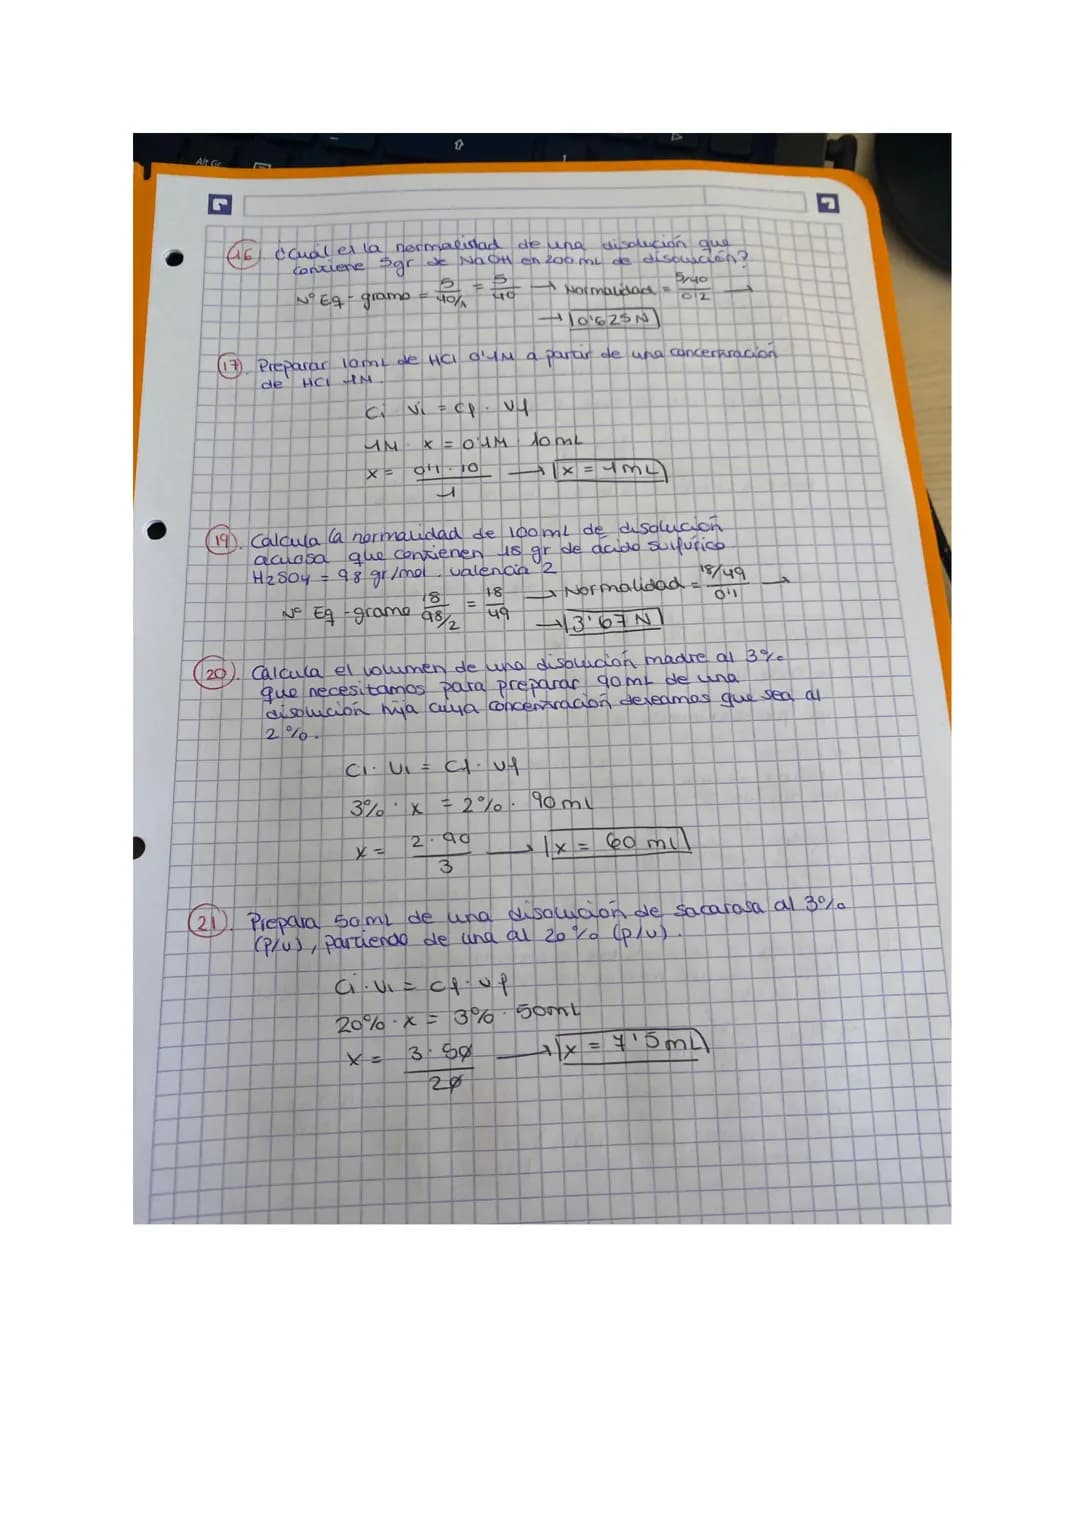 Alt Gr
16 ¿Cuál es la normalidad de una disolución que
contiene 5gr de NaOH en 200mL de disolución?
Nº Eq-gramo = 5/40/1 = 5/40 → Normalidad = 5/40/0'2 →
→ 0'625N
17). Preparar 10mL de HCl 0'1M a partir de una concentración
de HCl 1M.
Ci · Vi = Cf · Vf
1M · x = 0'1M · 10mL
x = 0'1 · 10/1 → x = 1mL
19). Calcula la normalidad de 100mL de disolución
acuosa que contienen 18 gr de ácido sulfúrico
H2SO4 = 98 gr/mol. valencia 2
Nº Eq-gramo 18/98/2 = 18/49 → Normalidad = 18/49/0'1 →
→ 3'67N
20). Calcula el volumen de una disolución madre al 3%
que necesitamos para preparar 90mL de una
disolución hija cuya concentración deseamos que sea al
2%.
Ci · Vi = Cf · Vf
3% · x = 2% · 90ml
x = 2 · 90/3 → x = 60 ml
21). Prepara 50mL de una disolución de sacarosa al 3%
(p/v), partiendo de una al 20% (p/v).
Ci · Vi = Cf · Vf
20% · x = 3% · 50mL
x = 3 · 50/20 → x = 7'5mL